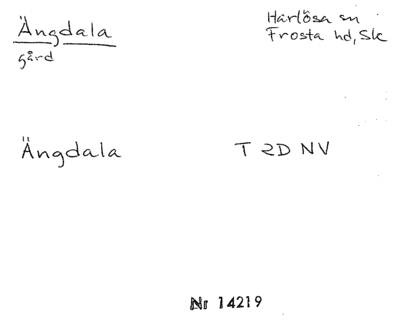 Ängdala
Harlösa sn
gård
Frosta hd, Sk
Ängdala
T 2D NV
Nr 14219